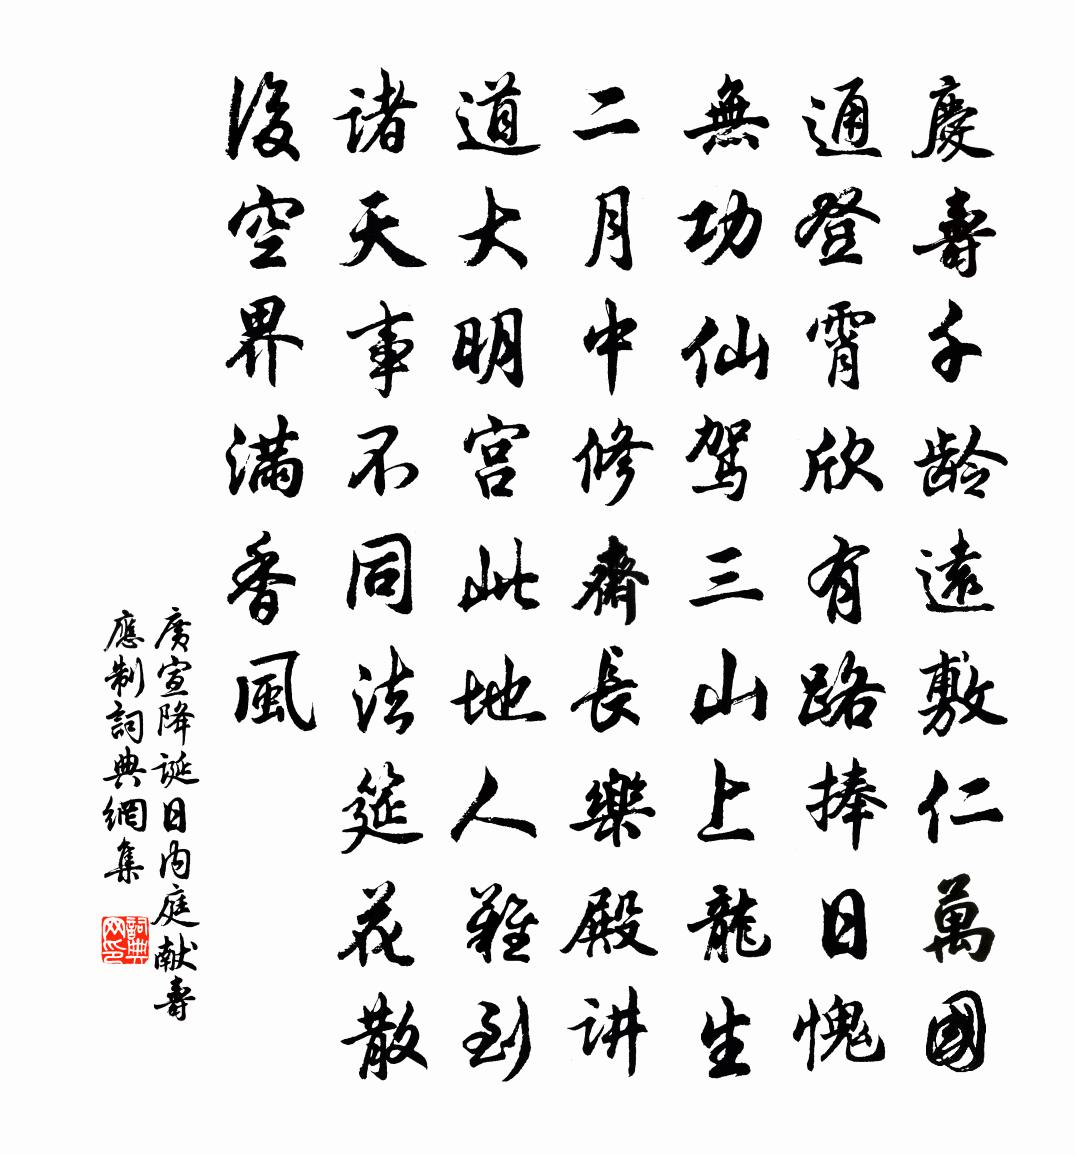 慶壽千齡遠敷仁萬國
通登霄欣有路捧日愧
無功仙駕三山上龍生
二月中修齋長樂殿讲
道大明宮此地人難到
诸天事不同法筵花散
後空界滿香風
廣宣降誕日內庭献壽
應制詞典網集
詞典
网印